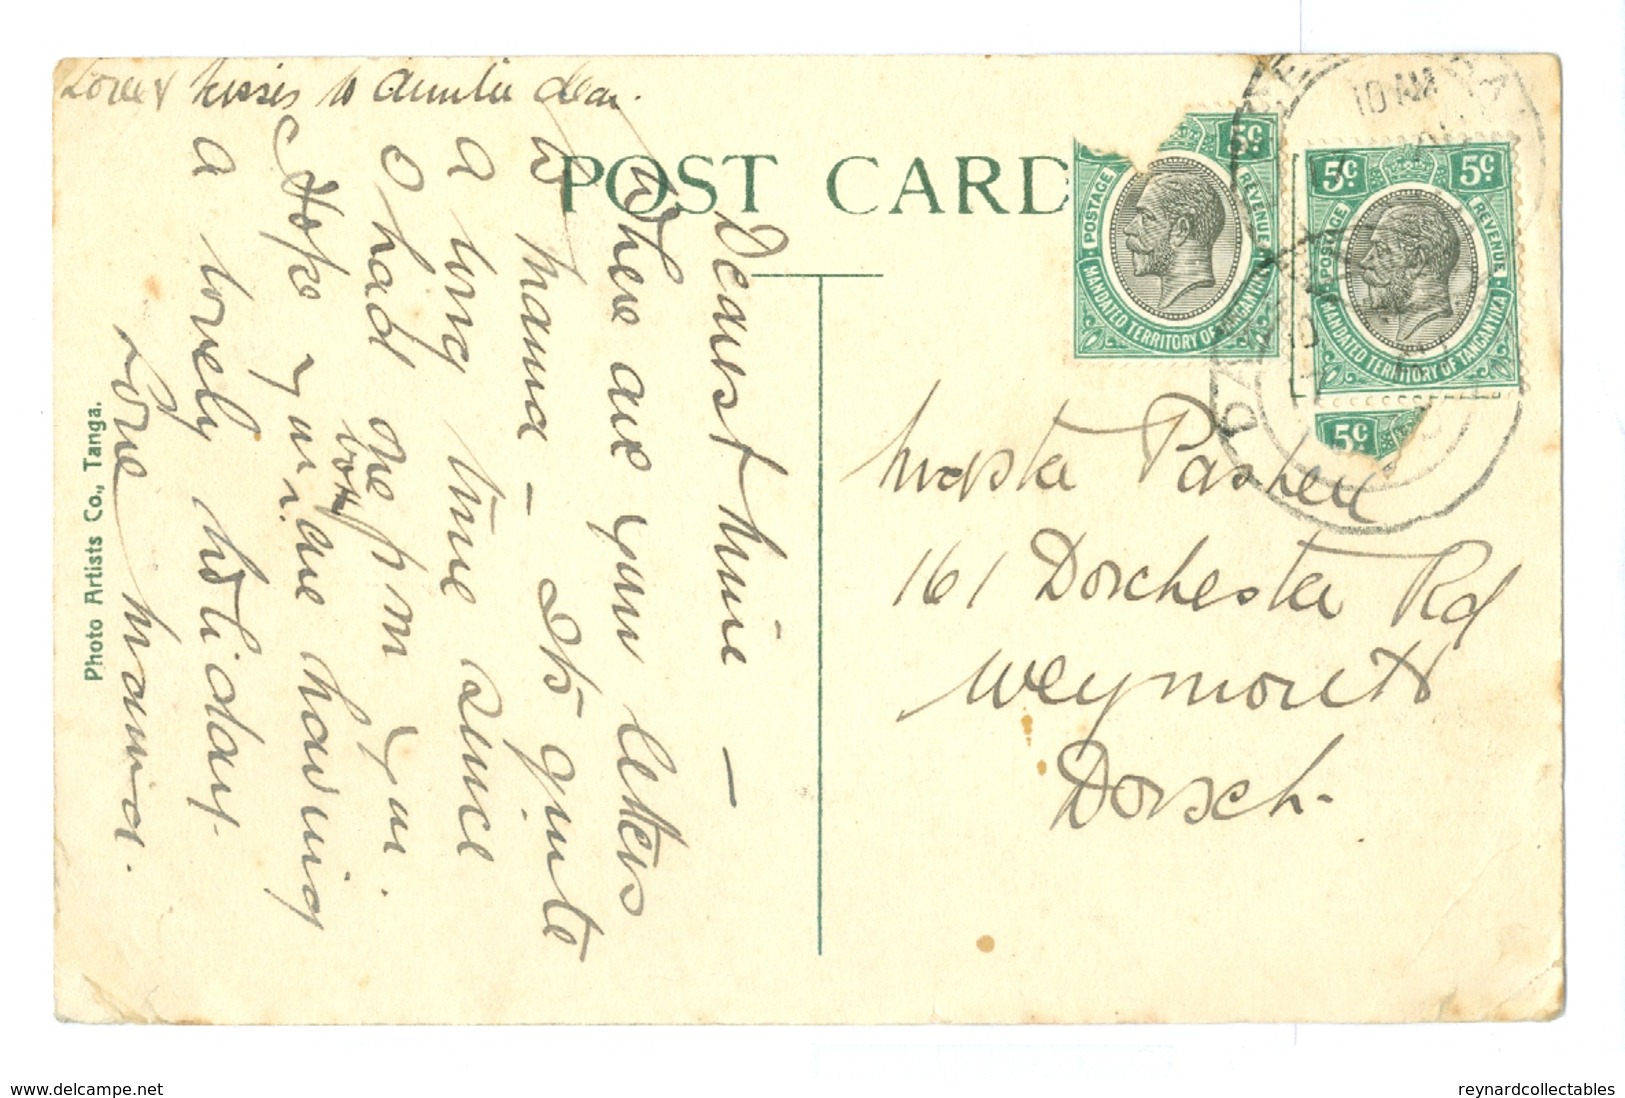 Love & kisses to Auntie dear.
POST CARD
Dearest mine —
Where are your letters
to mama — Its quite
a long time since
I had one from you.
Hope you are both having
a lovely holiday.
Love Mama.
Photo Artists Co., Tanga.
5c 5c
POSTAGE REVENUE
MANDATED TERRITORY OF TANGANYIKA
5c 5c
POSTAGE REVENUE
MANDATED TERRITORY OF TANGANYIKA
5c
10 AM
Master
161 Dorchester Rd
Weymouth
Dorset.
www.delcampe.net
reynardcollectables